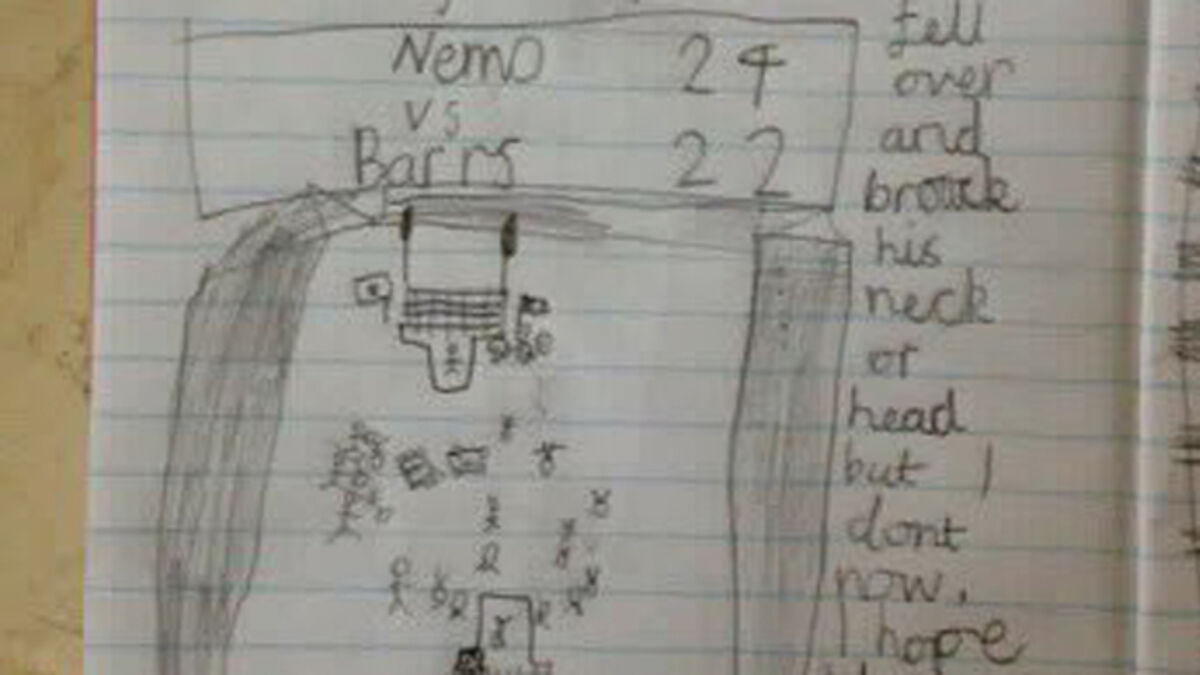 Nemo 24
vs
Barrs 22
fell
over
and
brouck
his
neck
or
head
but I
dont
now.
I hope